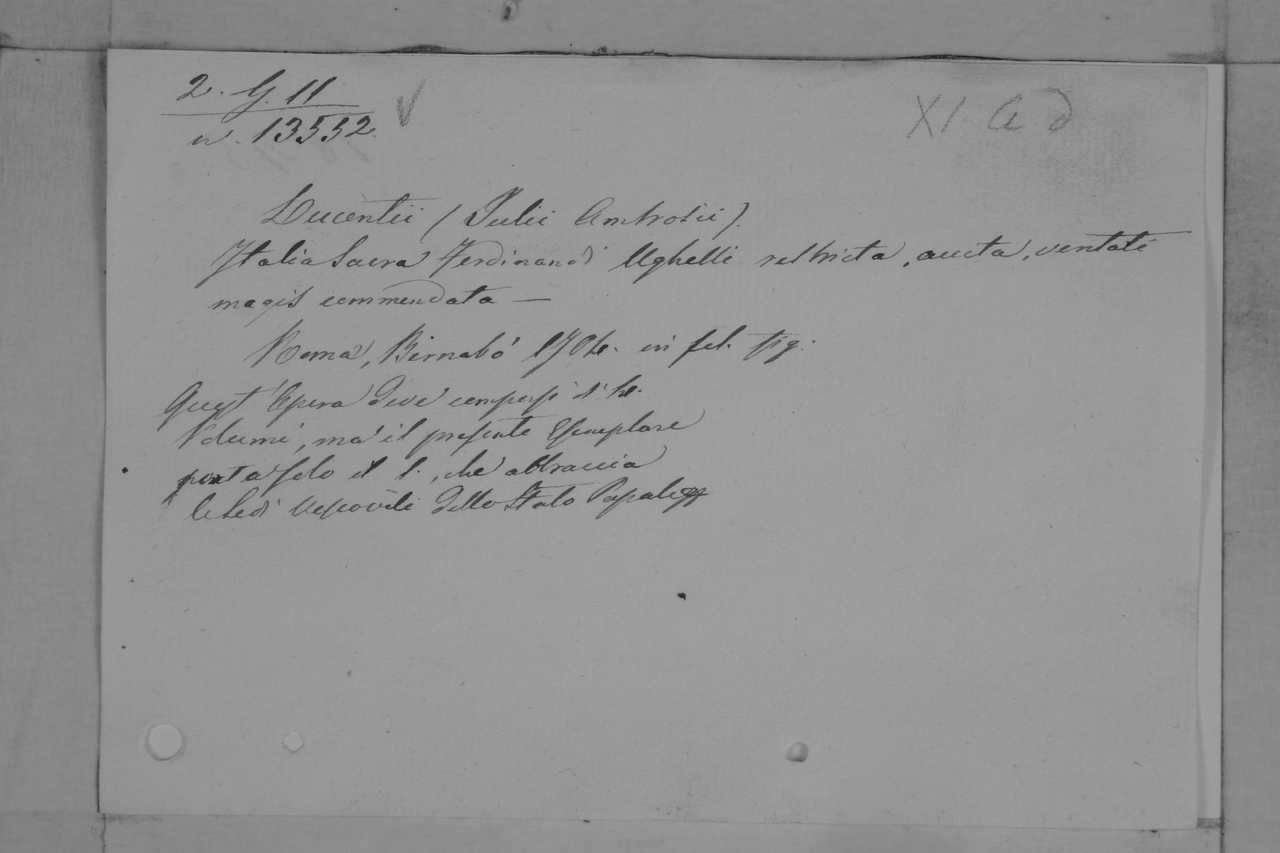 2. G. 11
n. 13552.
XI a d
Lucentii (Julii Ambrosii).
Italia Sacra Ferdinandi Ughelli restricta, aucta, veritati
magis commendata —
Roma, Bernabò 1704. in fol. fig.
Quest'Opera deve comporsi d'
Volumi, ma il presente Esemplare
porta solo il 1., che abbraccia
le Sedi Vescovili dello Stato Papale